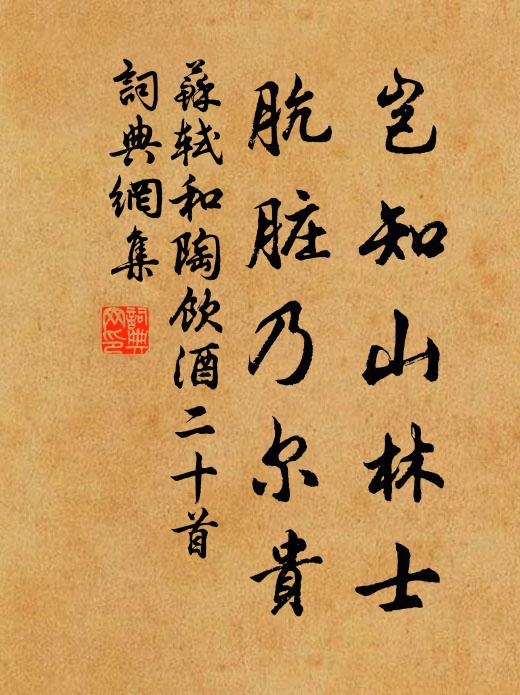 岂知山林士
肮脏乃尔贵
蘇軾和陶飲酒二十首
詞典網集
詞典网印